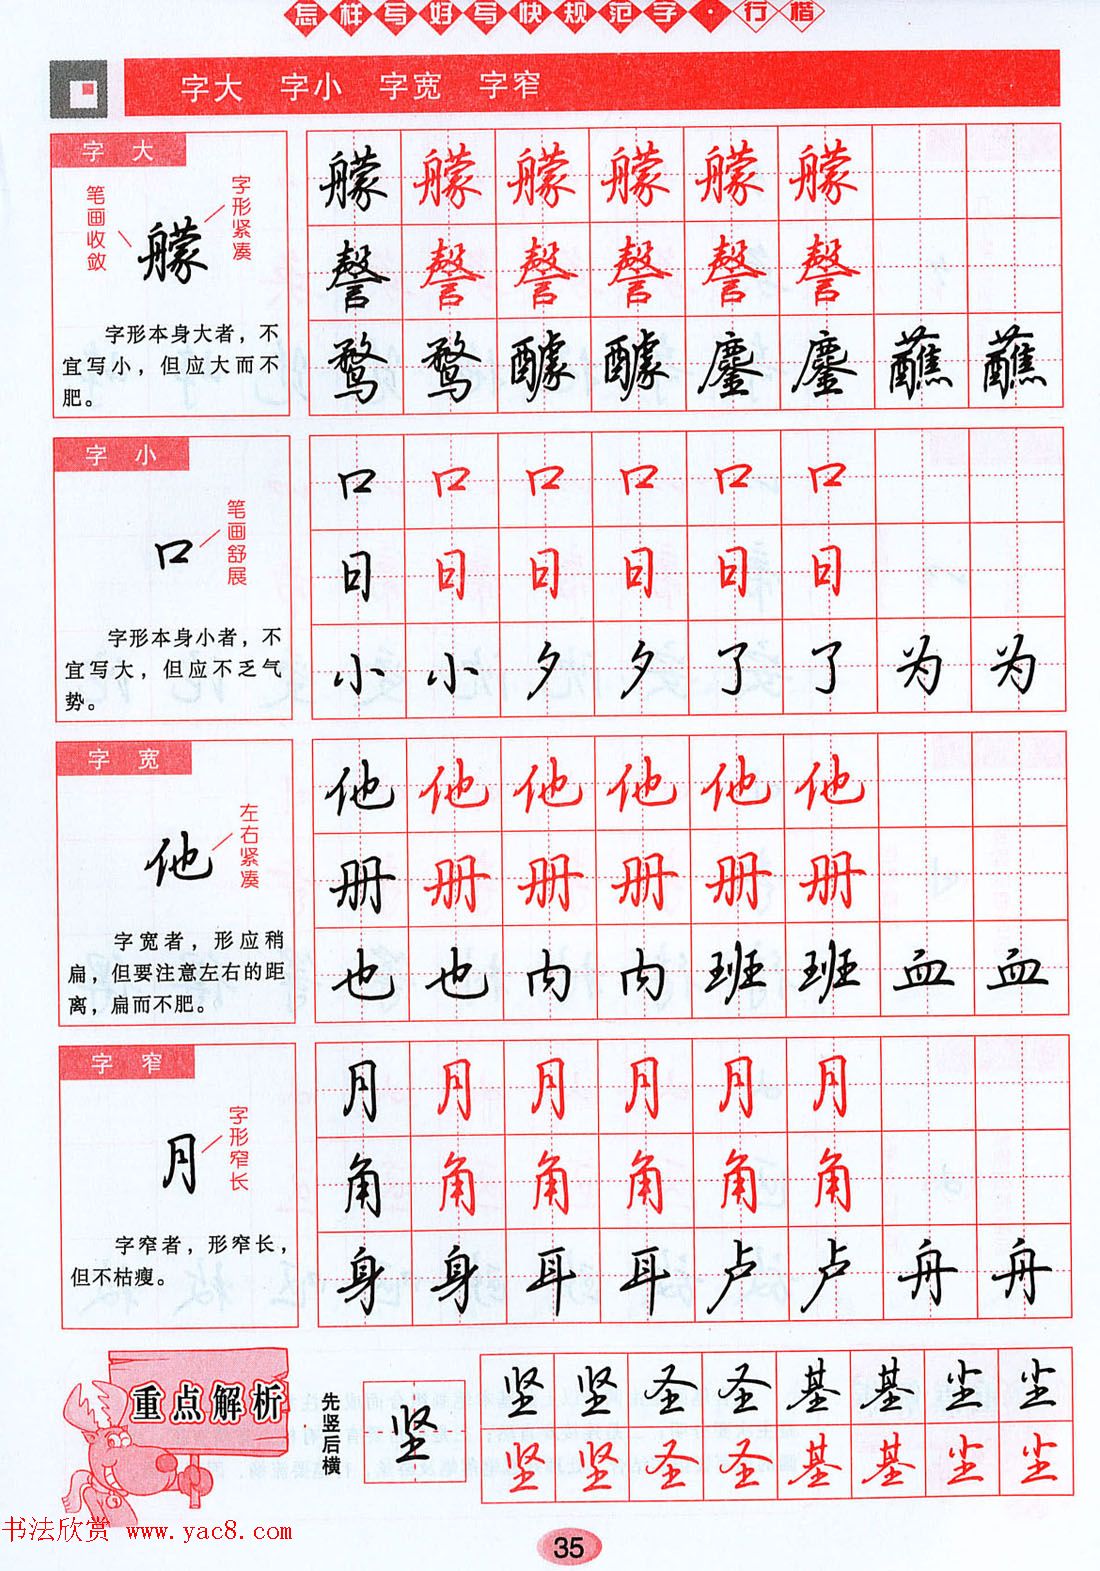 怎样写好写快规范字·行楷
字大 字小 字宽 字窄
字大
笔画收敛
字形紧凑
艨
字形本身大者，不
宜写小，但应大而不
肥。
艨艨艨艨艨艨
謦謦謦謦謦謦
鹜鹜醵醵鏖鏖蘸蘸
字小
笔画舒展
口
字形本身小者，不
宜写大，但应不乏气
势。
口口口口口口
日日日日日日
小小夕夕了了为为
字宽
左右紧凑
他
字宽者，形应稍
扁，但要注意左右的距
离，扁而不肥。
他他他他他他
册册册册册册
也也内内班班血血
字窄
字形窄长
月
字窄者，形窄长，
但不枯瘦。
月月月月月月
角角角角角角
身身耳耳卢卢舟舟
重点解析
先竖后横
坚
坚坚圣圣基基尘尘
坚坚圣圣基基尘尘
书法欣赏 www.yac8.com
35